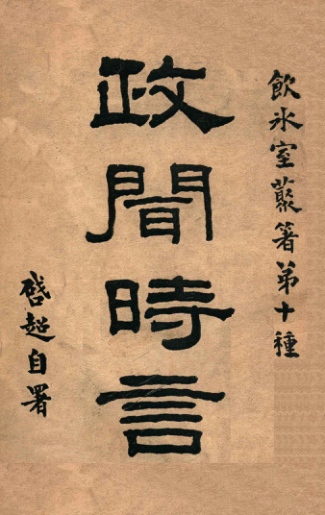 飲冰室叢著第十種
政聞時言
啓超自署